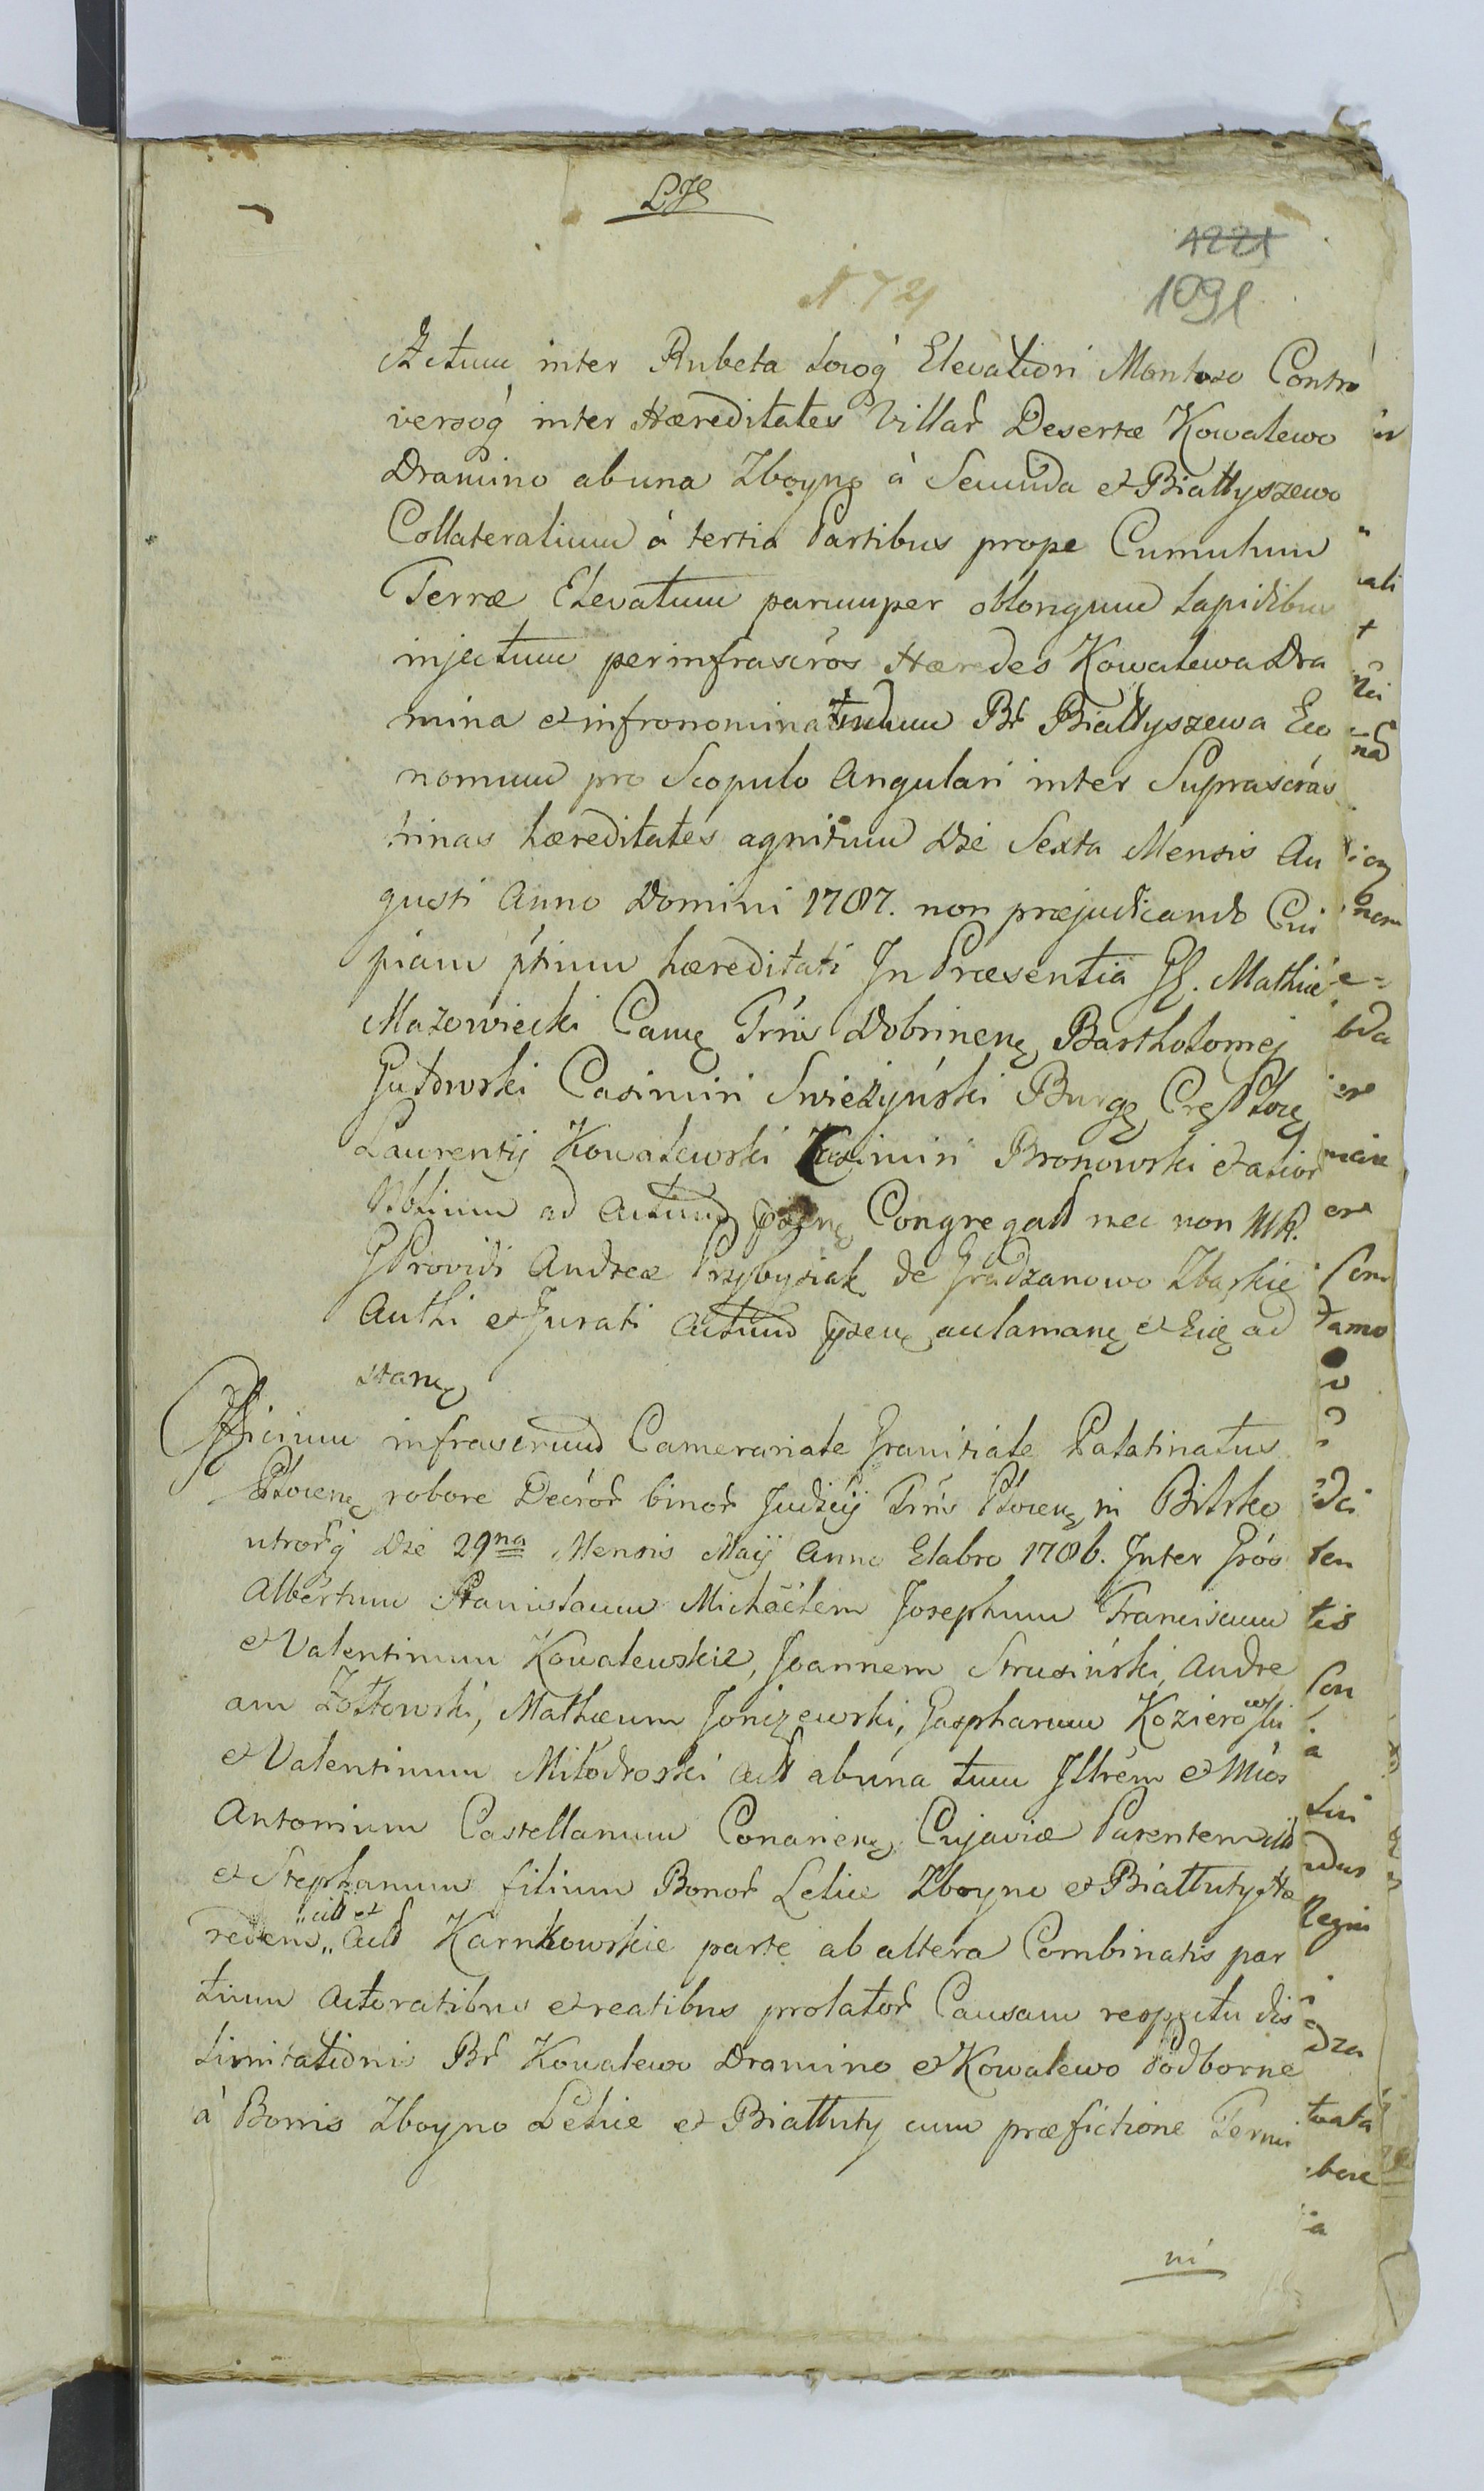 LJS
1221
N 721
1091
Actum inter Rubeta locoq́ Elevatiori Montoso Contro
versoq́ inter Hæreditates Villar̃ Desertæ Kowalewo
Dramino ab una Zboyno à Secunda et Białłyszewo
Collateralium à tertia Partibus prope Cumulum
Terræ Elevatum parumper oblongum Lapidibus
injectum per infrascr̃os Hæredes Kowalewa Dra
mina et infronominatum Br̃ Białłyszewa Eco
nomum pro Scopulo Angulari inter Suprascr̃as
trinas hæreditates agnitum Die Sexta Mensis Au
gusti Anno Domini 1787. non præjudicando Cui
piam ṕtium hæreditati Jn Præsentia GG. Mathiæ
Mazowiecki Camę Tr̃ris Dobrinenę Bartholomej
Gutowski Casimiri Swieżyński Burgę Cręs Płocę
Laurentij Kowalewski Casimiri Bronowski et alior̃
Nobilium ad Actum pñsenę Congregatt nec non MR.
G Providi Andreæ Przybysiak de Gradzanowo Zbąskie
Auth̃i et Jurati Actum pñsenę aclamanę et Eię ad
stanę
Officium infrascrittum Camerariale Granitiale Palatinatus
Płocenę robore Decr̃or̃ binor̃ Judicij Tr̃ris Płocenę in Bilsko
utror̃q́ Die 29na Mensis Maij Anno Elabso 1786. Jnter Gr̃oos
Albertum Stanislaum Michäelem Josephum Franciscum
et Valentinum Kowalewskie, Joannem Strusiński, Andre
am Żołtowski, Mathæum Jonizewski, Gaspharum Kozierowski
et Valentinum Miłodroski Actt ab una tum Jllrẽm et Mñcos
Antonium Castellanum Conarienę Cujaviæ Parentem
et Stephanum filium Bonor̃ Lelice Zboyno et Białłuty Hæ
redens „citt et„ Actt Karnkowskie parte ab altera Combinatis par
tium Actoratibus et reatibus prolator̃ Causam respectu dis
limitationis Br̃ Kowalewo Dramino et Kowalewo Podborne
à Bonis Zboyno Lelice et Białłuty cum præfictione Termi
ni